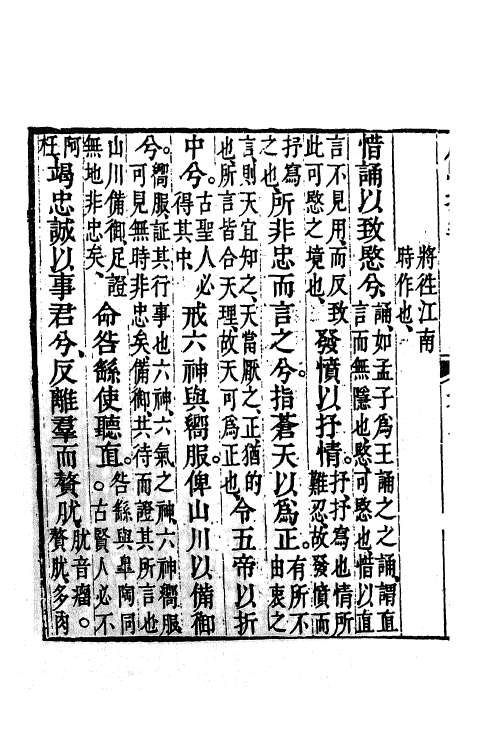 將徃江南
時作也、
惜誦以致愍兮、誦、如孟子爲王誦之之誦、謂直
言而無隱也愍、可愍也、惜以直
言不見用、而反致
此可愍之境也、發憤以抒情。抒、抒寫也情所
難忍、故發憤而
抒寫
之也、所非忠而言之兮指蒼天以爲正。有所不
由衷之
言、則天宜知之、天當厭之、正猶的
也、所言皆合天理、故天可爲正也、令五帝以折
中兮。古聖人必
得其中、戒六神與嚮服俾山川以備御
兮。嚮服、証其行事也六神、六氣之神、六神嚮服
可見無時非忠矣備御、共待而證其所言也
山川備御、足證
無地非忠矣、命咎繇使聽直。咎繇與臯陶同
。古賢人必不
阿
枉、竭忠誠以事君兮、反離羣而贅肬、肬音瘤。
贅肬、多肉